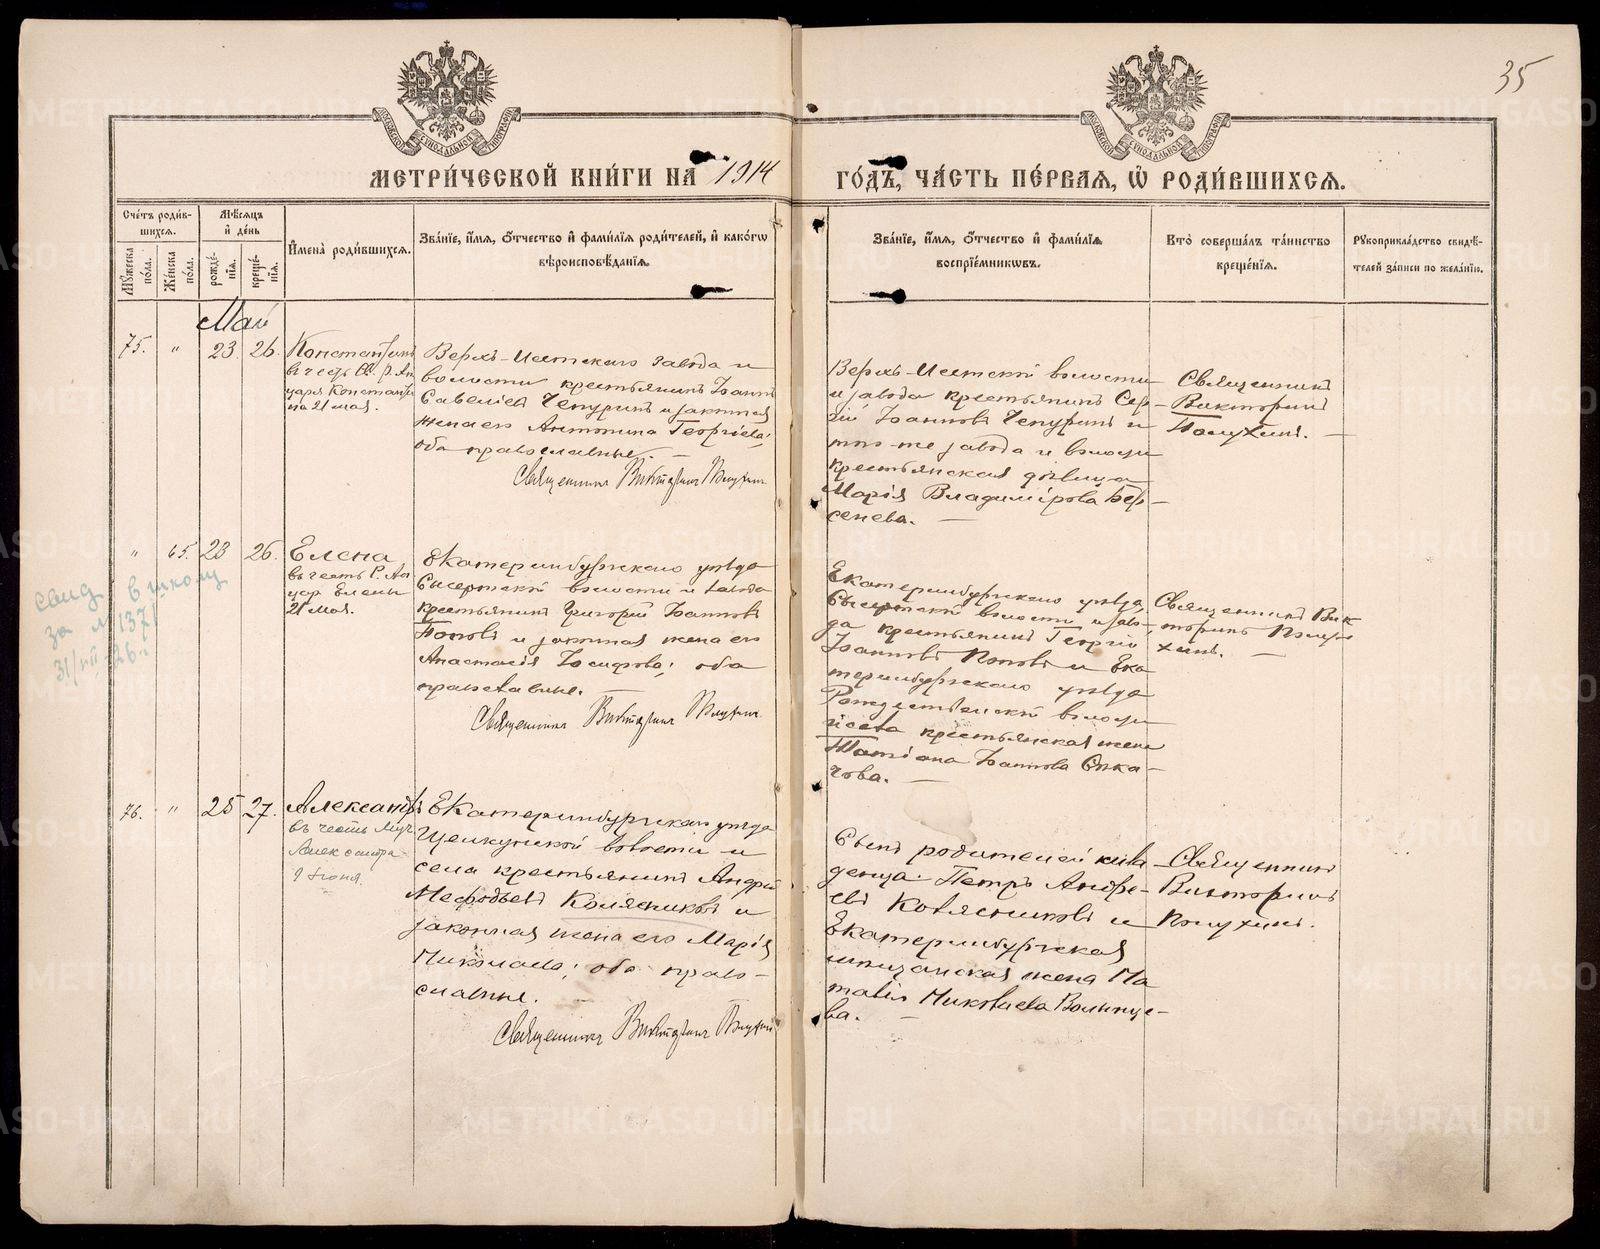 35
МОСКОВСКОЙ СѴНОДАЛЬНОЙ ТИПОГРАФІИ
МОСКОВСКОЙ СѴНОДАЛЬНОЙ ТИПОГРАФІИ
МЕТРИ́ЧЕСКОЙ КНИ́ГИ НА 1914 ГО́ДЪ, ЧА́СТЬ ПЕ́РВАѦ, Ѡ҆ РОДИ́ВШИХСѦ.
Сче́тъ роди́в-
шихсѧ.
Мꙋ́жеска по́ла.
Же́нска по́ла.
Мѣ́сѧцъ
и҆ де́нь
рожде́-
нїѧ.
креще́-
нїѧ.
И҆мена̀ роди́вшихсѧ.
Зва́нїе, и҆́мѧ, ѻ҆́тчество и҆ фами́лїѧ роди́телей, и҆ како́гѡ
вѣроисповѣ́данїѧ.
Зва́нїе, и҆́мѧ, ѻ҆́тчество и҆ фами́лїѧ
воспрїе́мникѡвъ.
Кто̀ соверша́лъ та́инство
креще́нїѧ.
Рꙋкоприкла́дство свидѣ́-
телей за́писи по жела́нїю.
Май
75. " 23. 26.
Константинъ
въ честь Св. Р. Ап.
царя Констант.
на 21 мая.
Верхъ-Исетскаго завода и
волости крестьянинъ Іоаннъ
Савеліевъ Чепуринъ и законная
жена его Антонина Георгіева;
оба православные.
Священникъ Викторинъ Полухинъ
Верхъ-Исетской волости
и завода крестьянинъ Сер-
гій Іоанновъ Чепуринъ и
того-же завода и волости
крестьянская дѣвица
Марія Владимірова Бер-
сенева. —
Священникъ
Викторинъ
Полухинъ. —
" 65. 23 26.
Елена
въ честь Р. Ап.
цар. Елены
21 мая.
свид. в школу
за № 1371
31/VII-26 г.
Екатеринбургскаго уѣзда
Сысертской волости и завода
крестьянинъ Григорій Іоанновъ
Поповъ и законная жена его
Анастасія Іосифова; оба
православные.
Священникъ Викторинъ Полухинъ
Екатеринбургскаго уѣзда,
Сысертской волости и заво-
да крестьянинъ Георгій
Іоанновъ Поповъ и Ека-
теринбургскаго уѣзда
Рождественской волости
и села крестьянская жена
Татіана Іоаннова Ска-
чова. —
Священникъ Вик-
торинъ Полу-
хинъ. —
76. " 25 27.
Александръ
въ честь муч.
Александра
9 Іюня.
Екатеринбургскаго уѣзда
Щелкунской волости и
села крестьянинъ Андрей
Мефодьевъ Колясниковъ и
законная жена его Марія
Николаева; оба право-
славные.
Священникъ Викторинъ Полухинъ
Сынъ родителей мла
денца Петръ Андре-
евъ Колясниковъ и
Екатеринбургская
мѣщанская жена На
талія Николаева Волынце-
ва. —
Священникъ
Викторинъ
Полухинъ.
METRIKI.GASO-URAL.RU